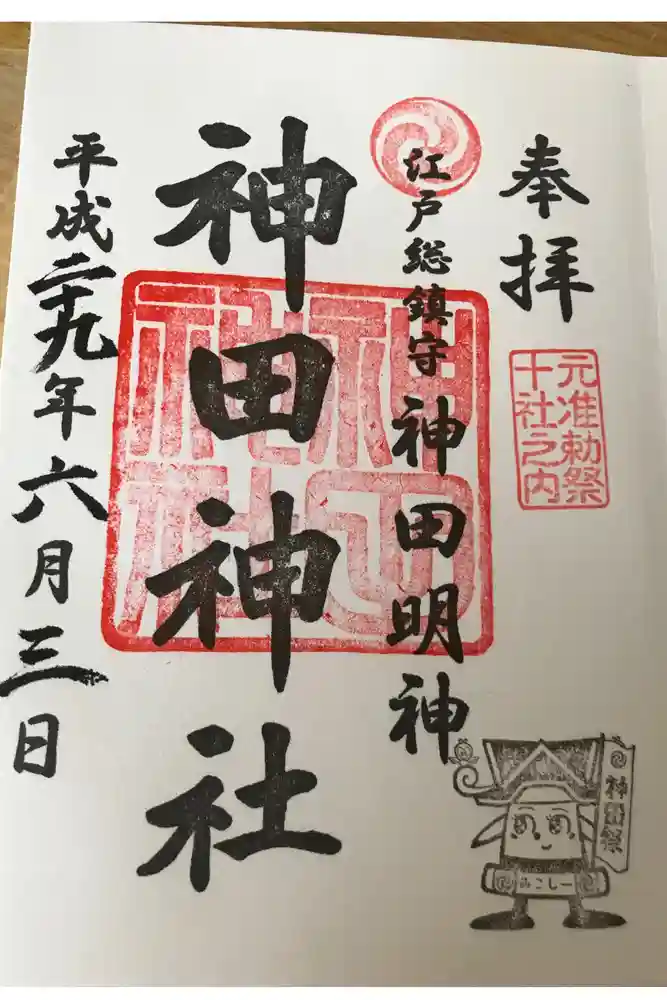 奉拝
元准勅祭
十社之内
江戸総鎮守神田明神
神田神社
神田神社
平成二十九年六月三日
神田祭
みこしー